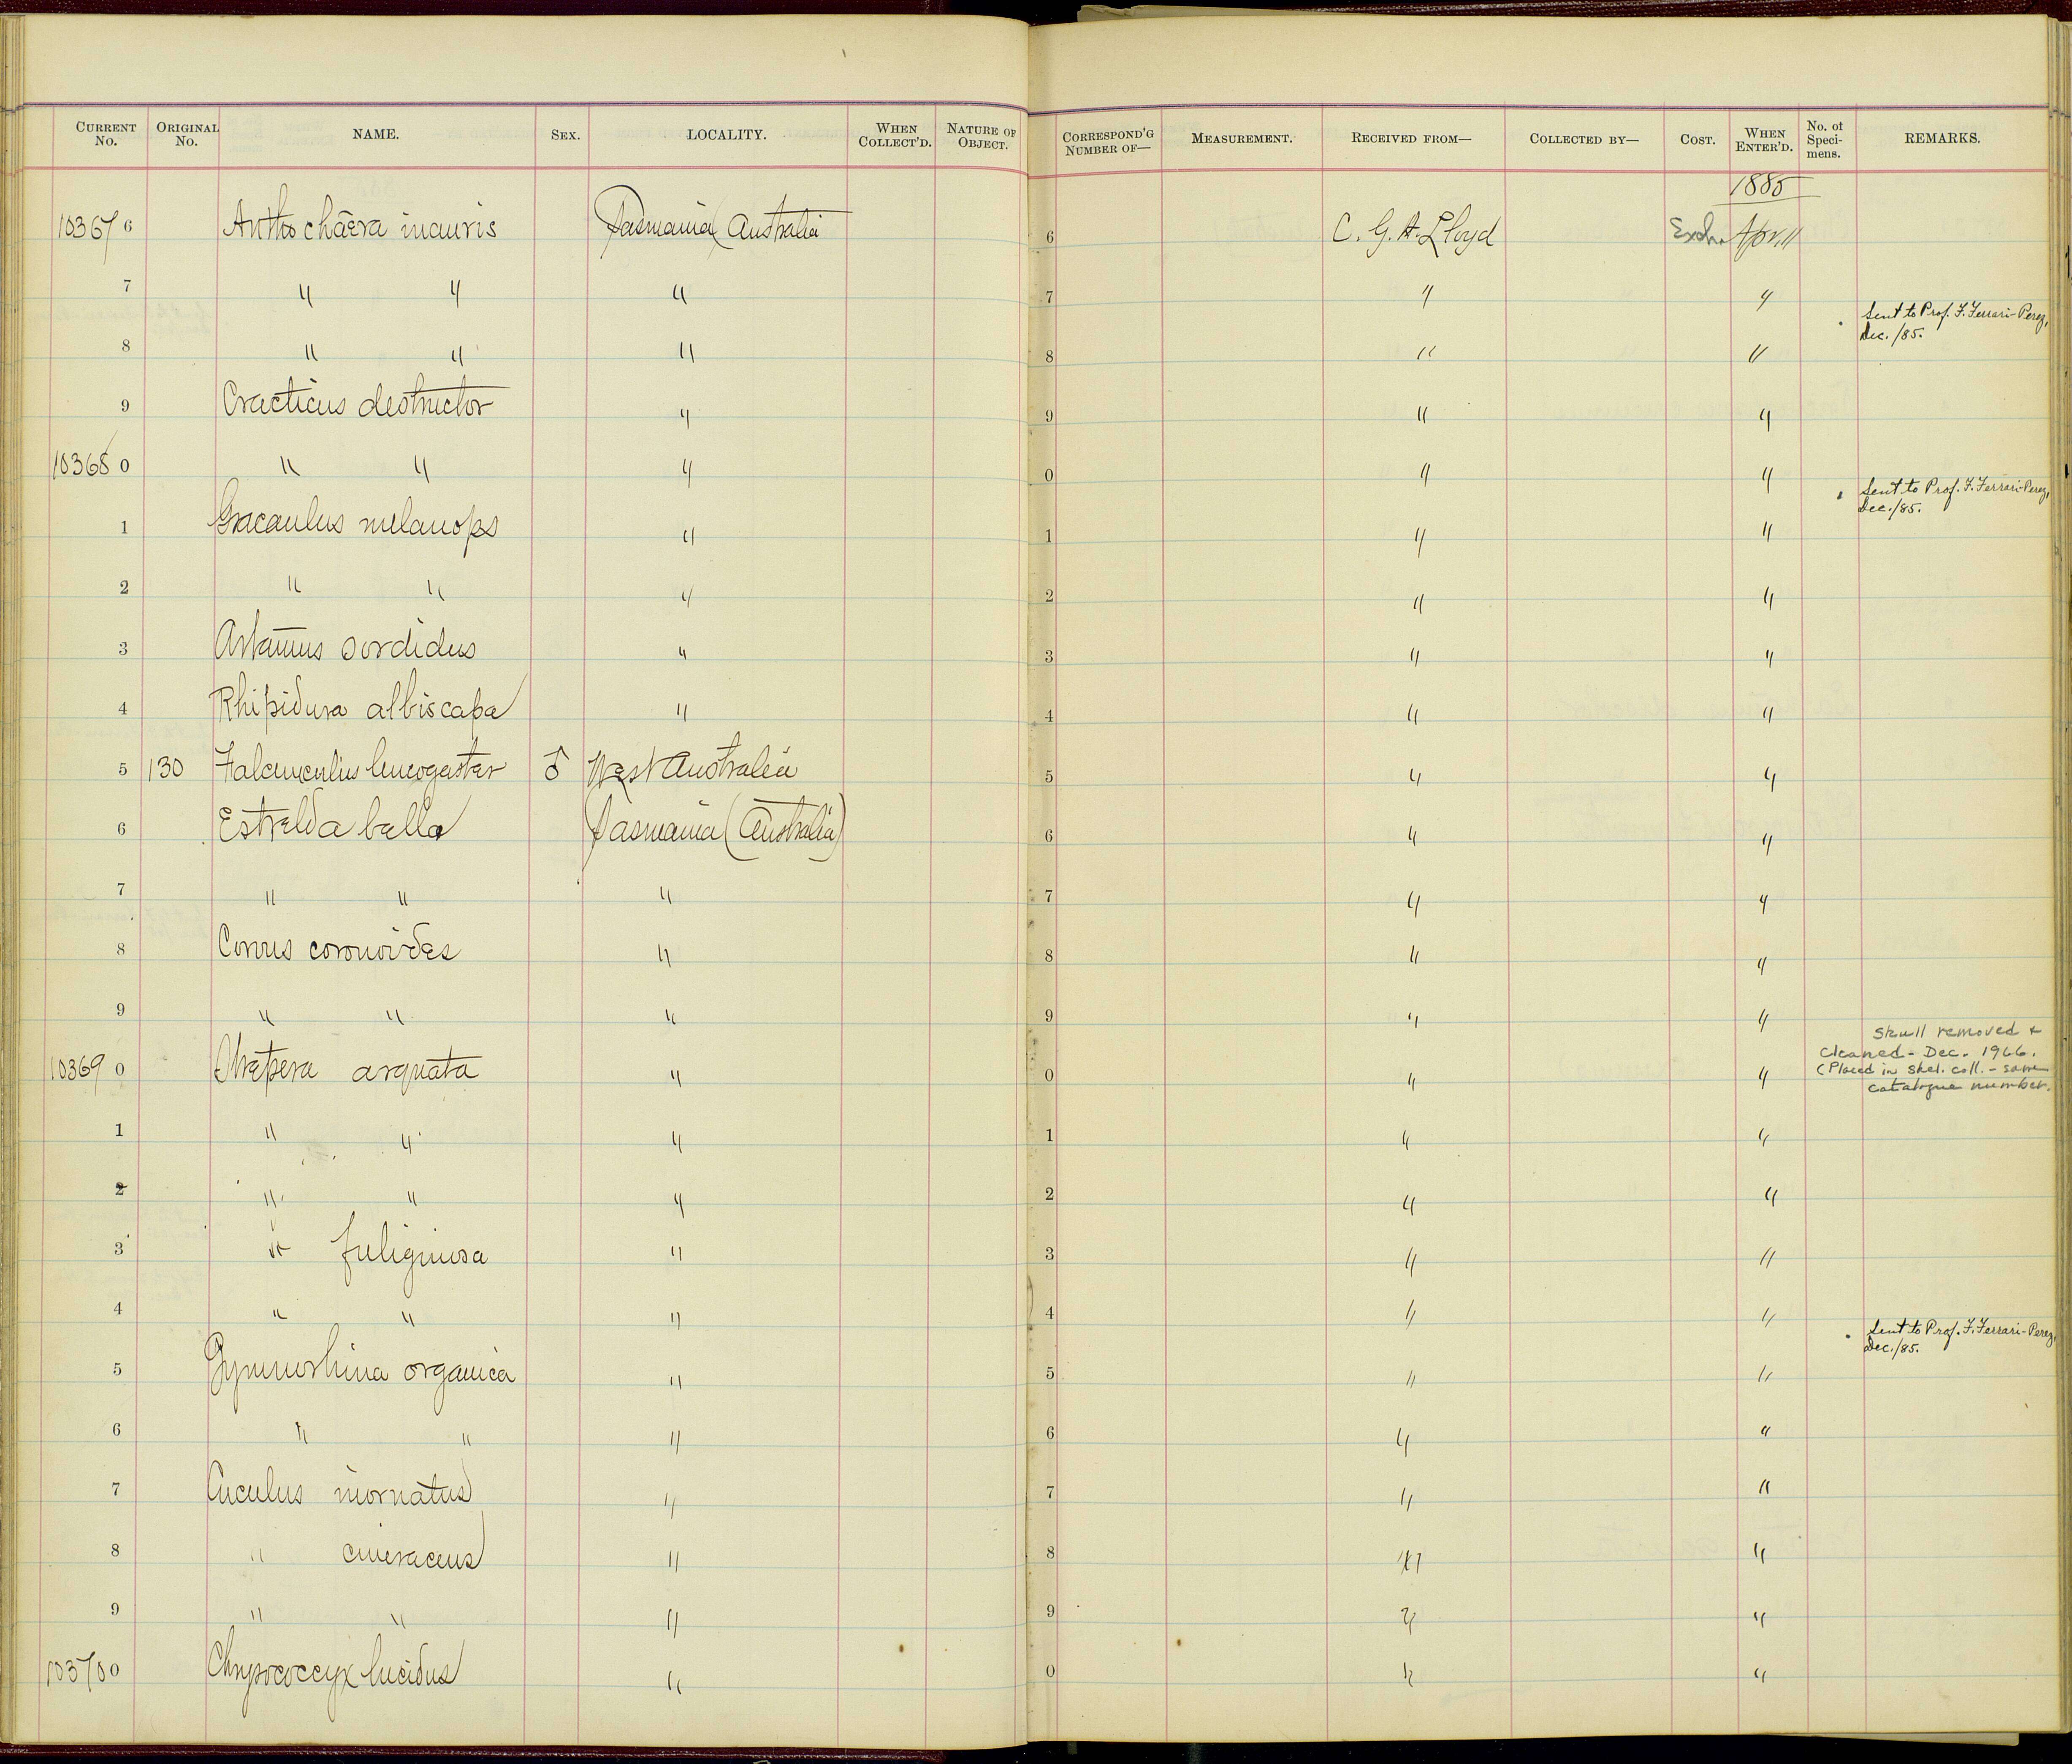 CURRENT No. ORIGINAL No. NAME. SEX. LOCALITY. WHEN COLLECT'D. NATURE OF OBJECT. CORRESPOND'G NUMBER OF— MEASUREMENT. RECEIVED FROM— COLLECTED BY— COST. WHEN ENTER'D. No. of Speci-mens. REMARKS.
1885
10367 6 Anthochaera inauris Tasmania (Australia 6 C. G. A. Lloyd Exch. April
7 " " " 7 " "
Sent to Prof. F. Ferrari-Perez,
Dec./85.
8 " " " 8 " "
9 Cracticus destructor " 9 " "
10368 0 " " " 0 " "
Sent to Prof. F. Ferrari-Perez,
Dec./85.
1 Gracaulus melanops " 1 " "
2 " " " 2 " "
3 Artamus sordidus " 3 " "
4 Rhipidura albiscapa " 4 " "
5 130 Falcunculus leucogaster ♂ West Australia 5 " "
6 Estrelda bella Tasmania (Australia) 6 " "
7 " " " 7 " "
8 Corvus coronoides " 8 " "
9 " " " 9 " "
Skull removed &
cleaned - Dec. 1966.
(Placed in skel. coll. - same
catalogue number.
10369 0 Strepera arguata " 0 " "
1 " " " 1 " "
2 " " " 2 " "
3 " fuliginosa " 3 " "
4 " " " 4 " "
Sent to Prof. F. Ferrari-Perez,
Dec./85.
5 Gymnorhina organica " 5 " "
6 " " " 6 " "
7 Cuculus inornatus " 7 " "
8 " cineraceus " 8 " "
9 " " " 9 " "
10370 0 Chrysococcyx lucidus " 0 " "